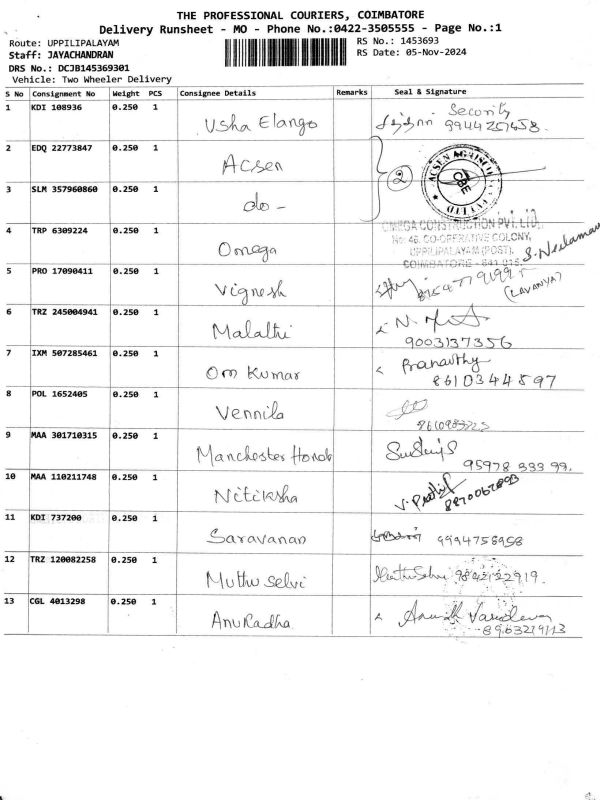 THE PROFESSIONAL COURIERS, COIMBATORE
Delivery Runsheet - MO - Phone No.:0422-3505555 - Page No.:1
Route: UPPILIPALAYAM
RS No.: 1453693
Staff: JAYACHANDRAN
RS Date: 05-Nov-2024
DRS No.: DCJB145369301
Vehicle: Two Wheeler Delivery
S No Consignment No Weight PCS Consignee Details Remarks Seal & Signature
1 KDI 108936 0.250 1 Usha Elango Security
2 EDQ 22773847 0.250 1 Acsen 2
3 SLM 357960860 0.250 1 do -
4 TRP 6309224 0.250 1 Omega
OMEGA CONSTRUCTION PVT. LTD.
No: 46, CO-OPERATIVE COLONY,
UPPILIPALAYAM (POST),
COIMBATORE - 641 015.
5 PRO 17090411 0.250 1 Vignesh (LAVANYA)
6 TRZ 245004941 0.250 1 Malathi
9003137356
7 IXM 507285461 0.250 1 Om Kumar
8610344597
8 POL 1652405 0.250 1 Vennila
9 MAA 301710315 0.250 1 Manchester Honda
95978 333 99.
10 MAA 110211748 0.250 1 Nitiksha
11 KDI 737200 0.250 1 Saravanan 9994758958
12 TRZ 120082258 0.250 1 Muthu selvi Muthu Selvi 9842122919.
13 CGL 4013298 0.250 1 AnuRadha